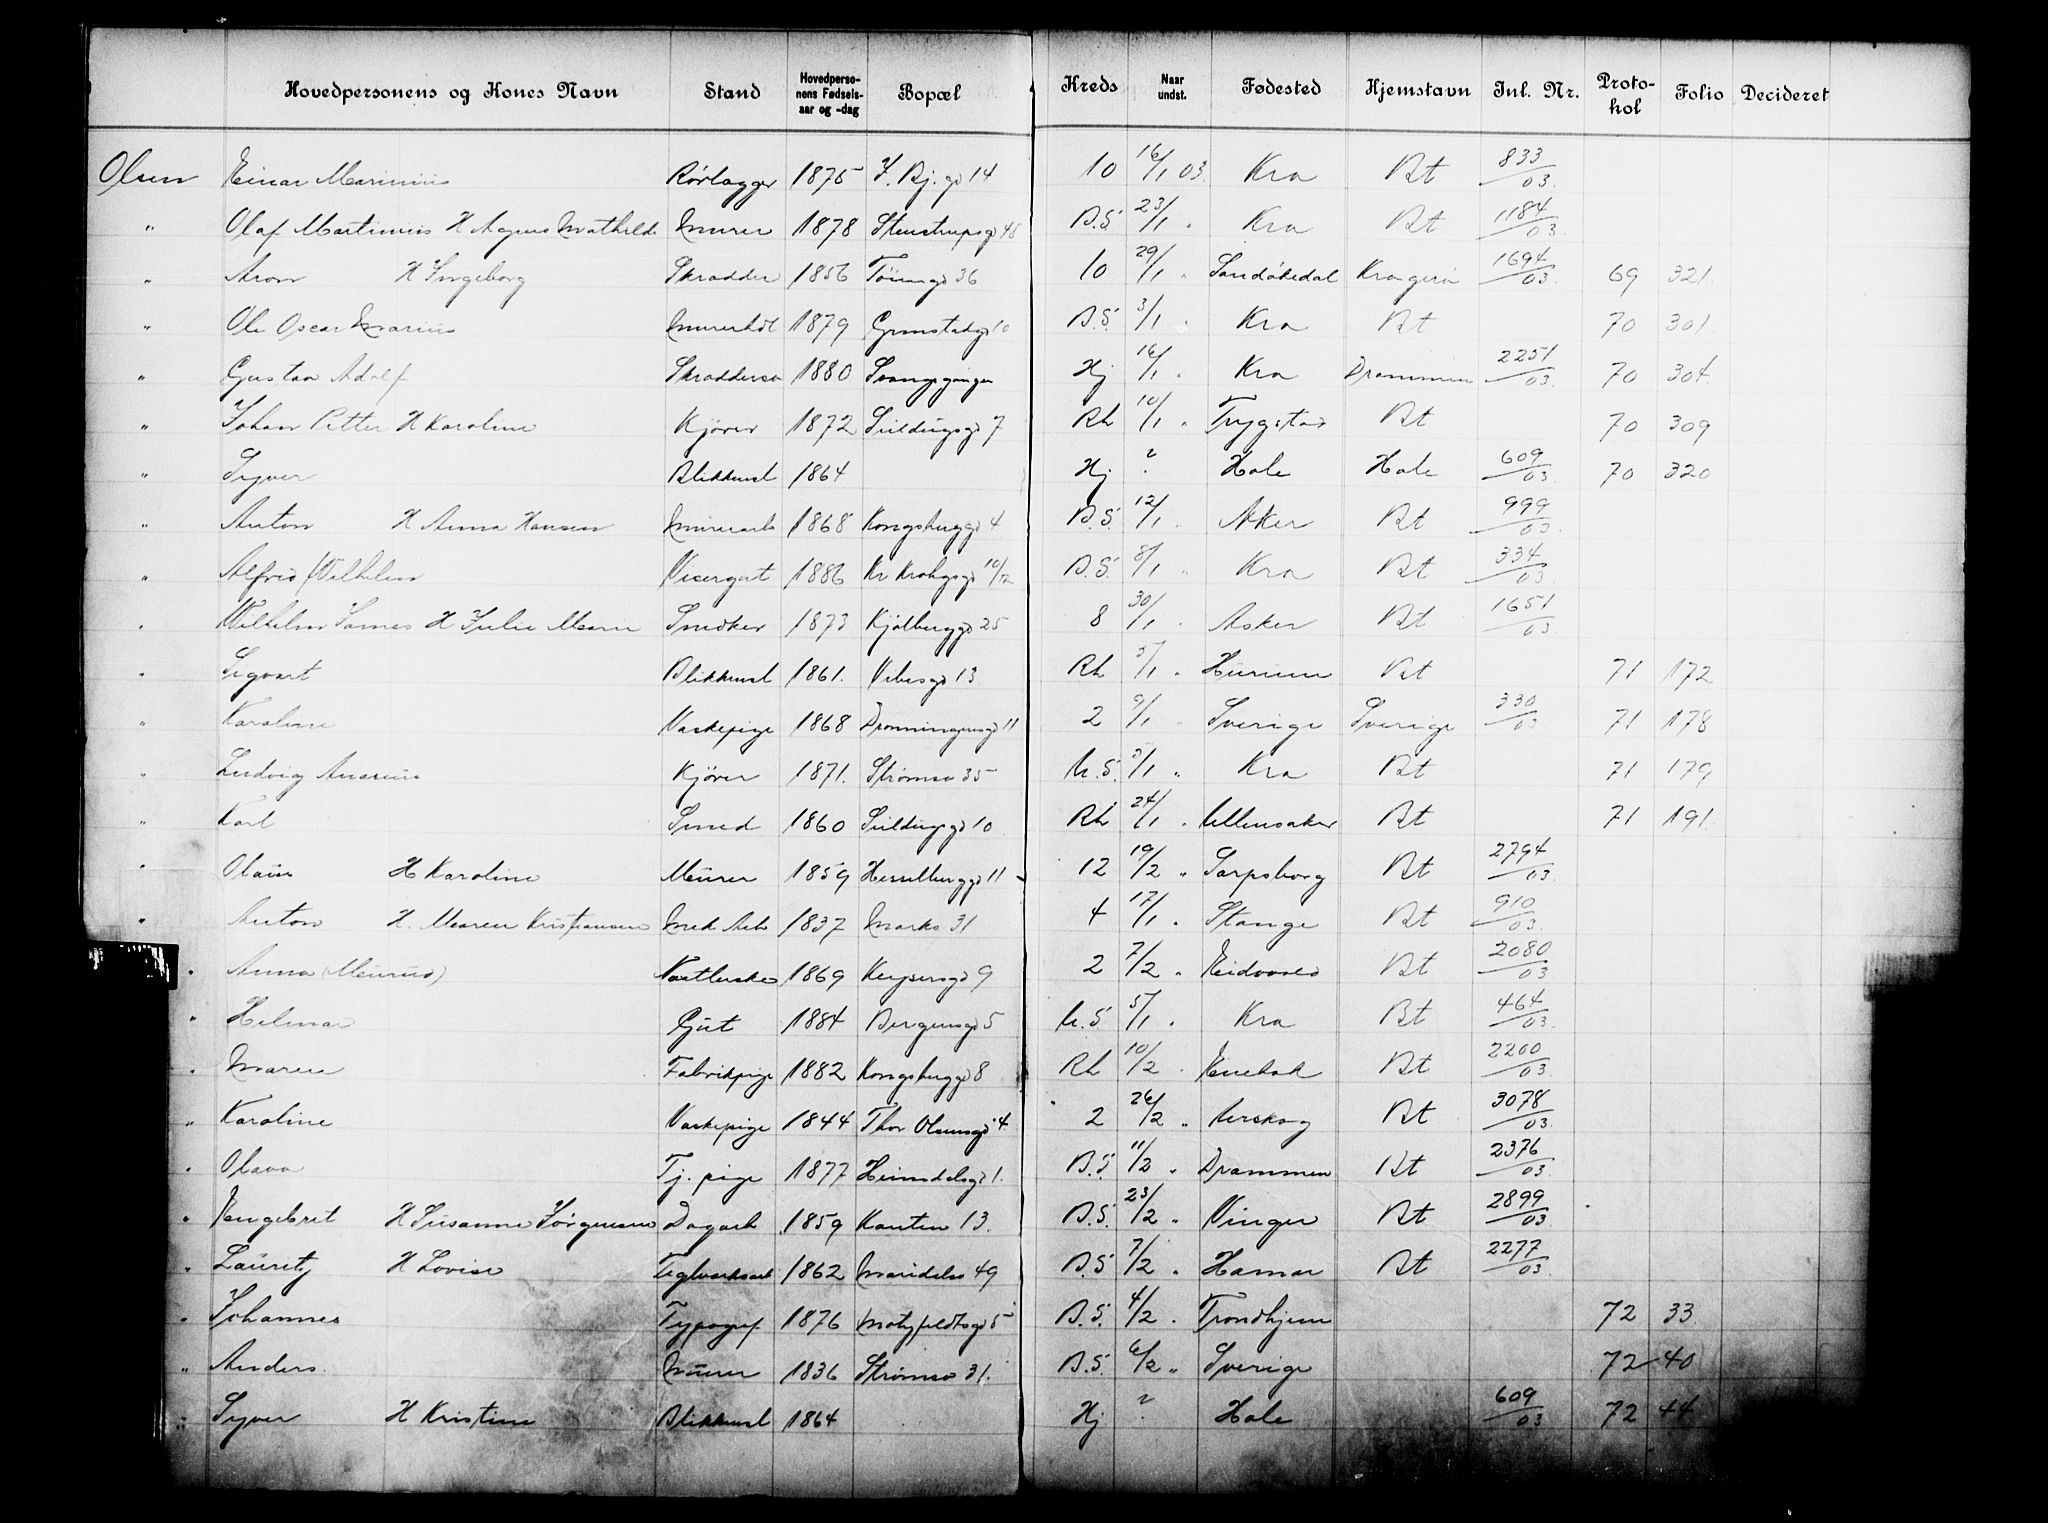 Hovedpersonens og Kones Navn Stand Hovedpersonens Fødselsaar og -dag Bopæl Kreds Naar undst. Fødested Hjemstavn Jnl. Nr. Protokol Folio Decideret
Olsen Einar Marinius Rørlægger 1875 J. Bj. gd 14 10 16/1 03. Kra Bt 833/03.
" Olaf Martinius H Agnes Mathilde Murer 1878 Stenstrupsgd 48 B.S. 23/1 " Kra Bt 1184/03.
" Aron H Ingeborg Skrædder 1856 Tøiengd 36 10 29/1 " Sandökedal Kragerö 1694/03. 69 321.
" Ole Oscar Marius 1879 Grimstadgd 10 B.S. 3/1 " Kra Bt 70 301.
" Gustav Adolf Skræddersv 1880 Hj 16/1 " Kra Drammen 2251/03. 70 304.
" Johan Petter H Karoline Kjører 1872 7 Rh 10/1 " Trygstad Bt 70 309
" Syver Blikkensl 1864 Hj ? Hole Hole 609/03. 70 320
" Anton H Anna Hansen Murerarb 1868 Kongsbergg 4 B.S. 12/1 " Aker Bt 999/03.
" Alfred Wilhelm Visergut 1886 Kr Krohgsgd 10/12 B.S. 8/1 " Kra Bt 334/03.
" Wilhelm James H Julie Marie Snedker 1873 Kjølberggd 25 8 30/1 " Asker Bt 1651/03.
" Sigvart Blikkensl 1861. Vibesgd 13 Rh 5/1 " Hurum Bt 71 172
" Karoline Vaskepige 1868 Dronningensgd 11 2 9/1 " Sverige Sverige 330/03 71 178
" Ludvig Anserius Kjører 1871. Strømsv 35 U.S. 5/1 " Kra Bt 71 179
" Karl Smed 1860 10 Rh 24/1 " Ullensaker Bt 71 191.
" Olaus H Karoline Murer 1859 Hesselberggd 11 12 19/2 " Sarpsborg Bt 2794/03.
" Anton H. Maren Kristiansen Mek Arb 1837 Markv 31 4 17/1 " Stange Bt 910/03.
" Anna (Maurud) 1869 Keysersgd 9 2 7/2 " Eidsvold Bt 2080/03
" Helmar Gut 1884 Bergensgd 5 U.S. 5/1 " Kra Bt 464/03.
" Maren Fabrikpige 1882 Kongsberggd 8 Rh 10/2 " Enebak Bt 2200/03.
" Karoline Vaskepige 1844 Thor Olsensgd 4 2 26/2 " Urskog Bt 3078/03.
" Olava Tj. pige 1877 Heimdalsgd 1. B.S. 11/2 " Drammen Bt 2376/03
" Engebret H Susanne Jørgensen Dagarb. 1859 Kanten 13. B.S. 23/2 " Vinger Bt 2899/03
" Lauritz H Lovise Teglverksarb 1862 Maridalsv 49 B.S 7/2 " Hamar Bt 2277/03.
" Johannes Typograf 1876 Motzfeldtsgd 5 B.S. 4/2 " Trondhjem 72 33.
" Anders. Murer 1836 Strømsv 31. B.S. 6/2 " Sverige 72 40
" Syver H Kristine Blikkensl 1864 Hj ? Hole 609/03 72 44